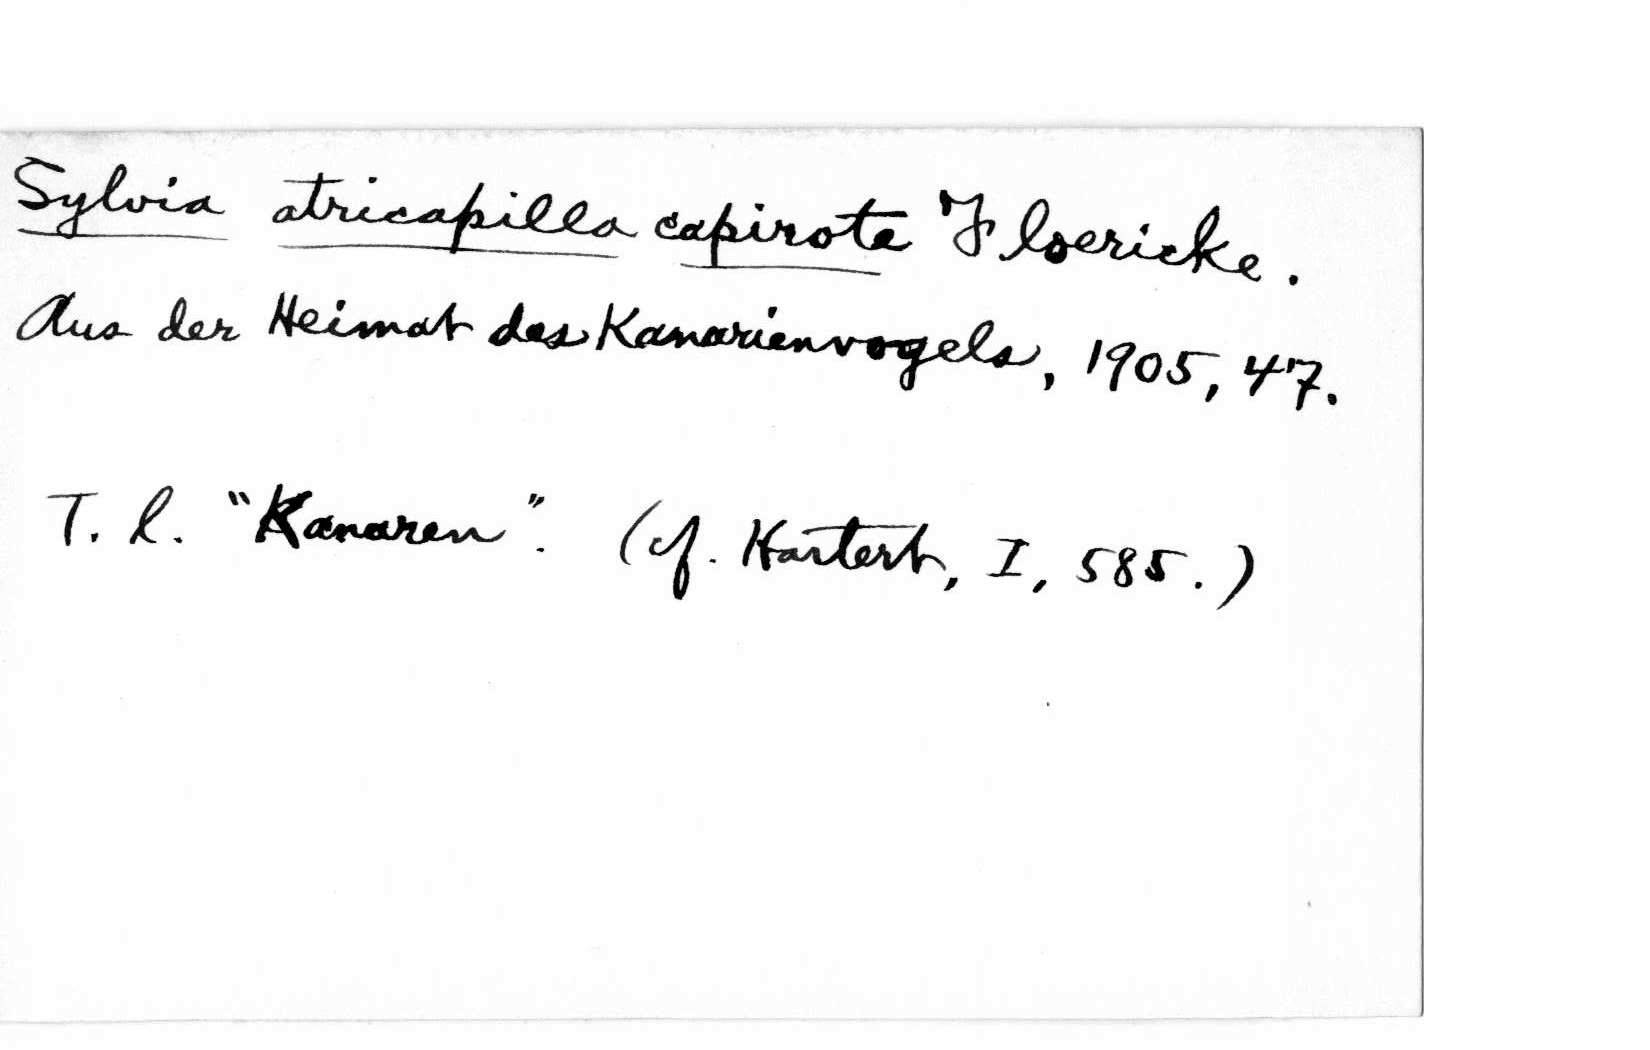 Sylvia atricapilla capirote Floericke.
Aus der Heimat des Kanarienvogels, 1905, 47.
T. l. "Kanaren". (cf. Hartert, I, 585.)